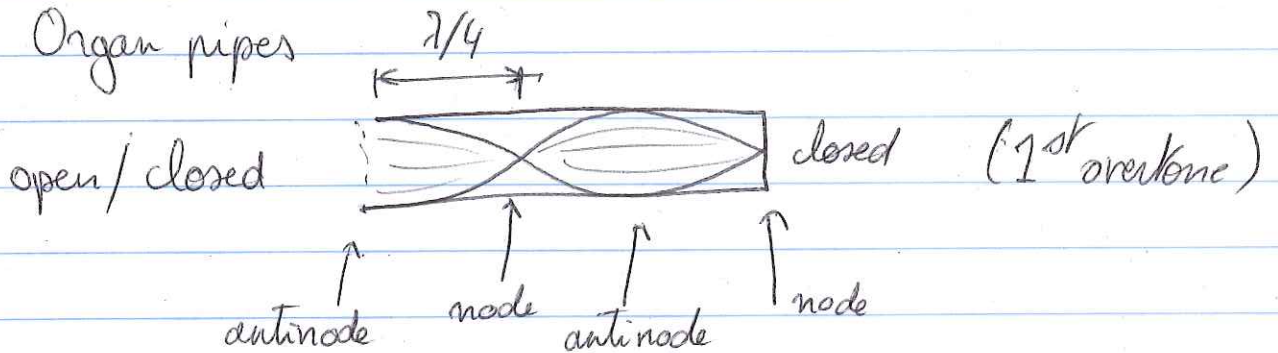 Organ pipes
λ/4
open/closed
closed
(1st overtone)
antinode
node
antinode
node